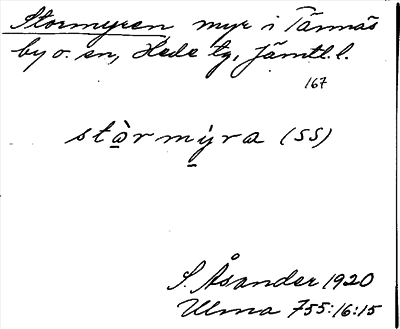 Stormyren myr i Tännäs
by o. sn, Hede tg, Jämtl. l.
167
stàrmýra (SS)
S. Åsander 1920
Ulma 755:16:15